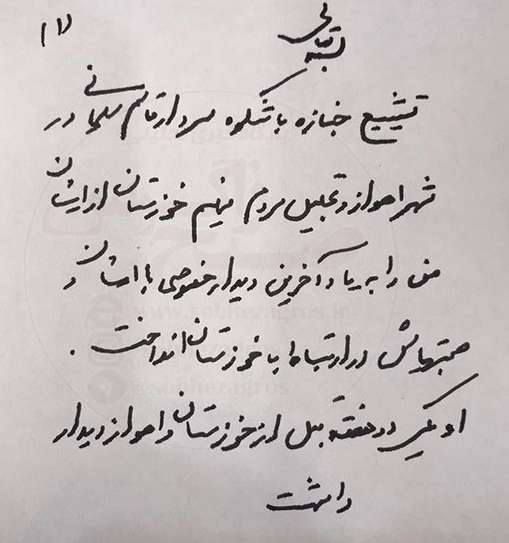 (۱
بسمه تعالی
تشییع جنازه باشکوه سردار قاسم سلیمانی در
شهر اهواز و تجلیل مردم فهیم خوزستان از ایشان
من را به یاد آخرین دیدار خصوصی با ایشان و
صحبتهایش در ارتباط با خوزستان انداخت.
او یکی دو هفته قبل از خوزستان و اهواز دیدار
داشت
www.sobhezagros.ir
@sobhezagros